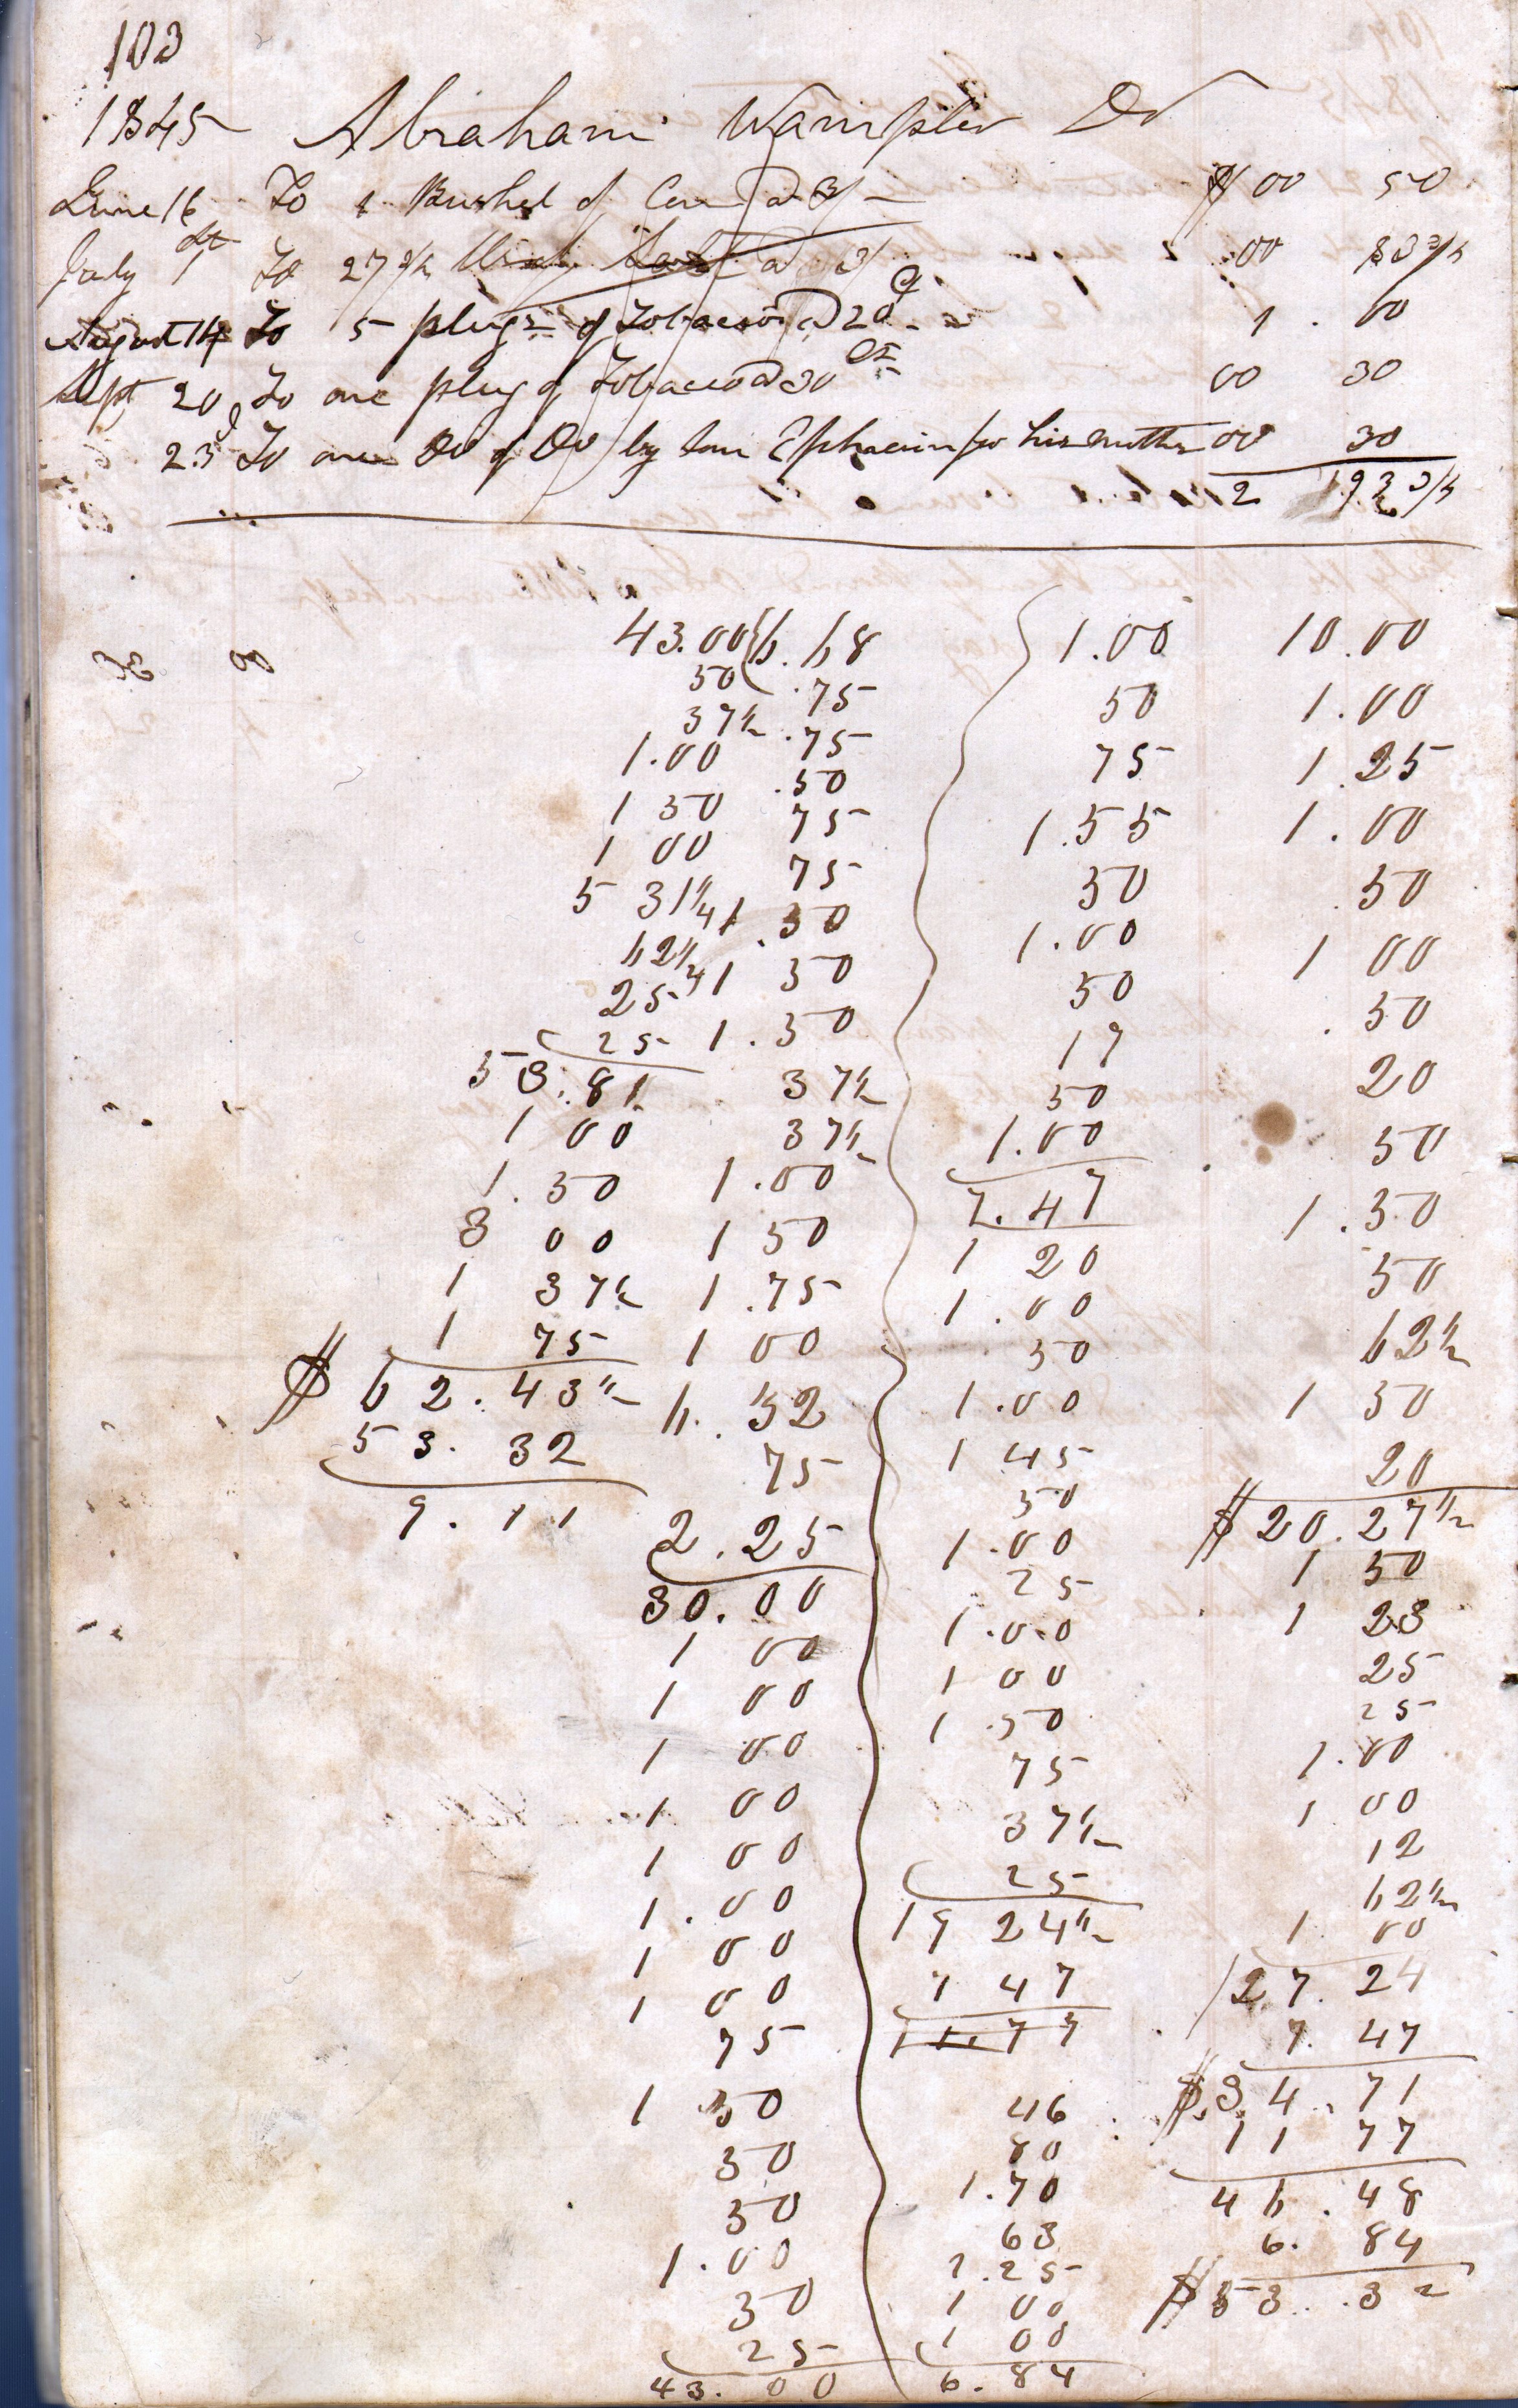 103
1845 Abraham Wampler Dr
June 16 To 1 Bushel of Corn @ 3/ $ 00 50
July 1st To 27 3/4 @ 3/ 00 83 3/4
August 14 To 5 plugs of Tobacco @ 20 c 1.00
Sept 20 To one plug of Tobacco @ 30 cts 00 30
23d To one Do of Do by Son Ephraim for his mother 00 30
2 93 3/4
43.00
50
37 1/2
1.00
1 50
1 00
5 31 1/4
62 1/2
25
25
53.81
1 00
1.50
3 00
1 37 1/2
1 75
$ 62.43 1/2
53.32
9.11
6.68
.75
.75
.50
75
75
1.50
1 50
1.50
37 1/2
37 1/2
1.00
1 50
1.75
1 00
6.52
75
2.25
30.00
1 00
1 00
1 00
1 00
1 00
1.00
1 00
1 00
75
1 50
50
50
1.00
50
25
43.00
1.00
50
75
1.55
50
1.00
50
17
50
1.00
7.47
1 20
1.00
50
1.00
1 45
50
1.00
25
1.00
1 00
1.50
75
37 1/2
25
19 24 1/2
7 47
11.77
46
80
1.70
63
1.25
1 00
1 00
6.84
10.00
1.00
1.25
1.00
.50
1 00
.50
20
50
1.50
50
62 1/2
1 50
20
$ 20.27 1/2
1 50
1 23
25
25
1.00
1 00
12
62 1/2
1.00
27.24
7.47
$ 34.71
11 77
46.48
6.84
$ 53.32